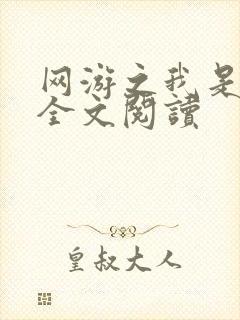 网游之我是
全文閱讀
皇叔大人